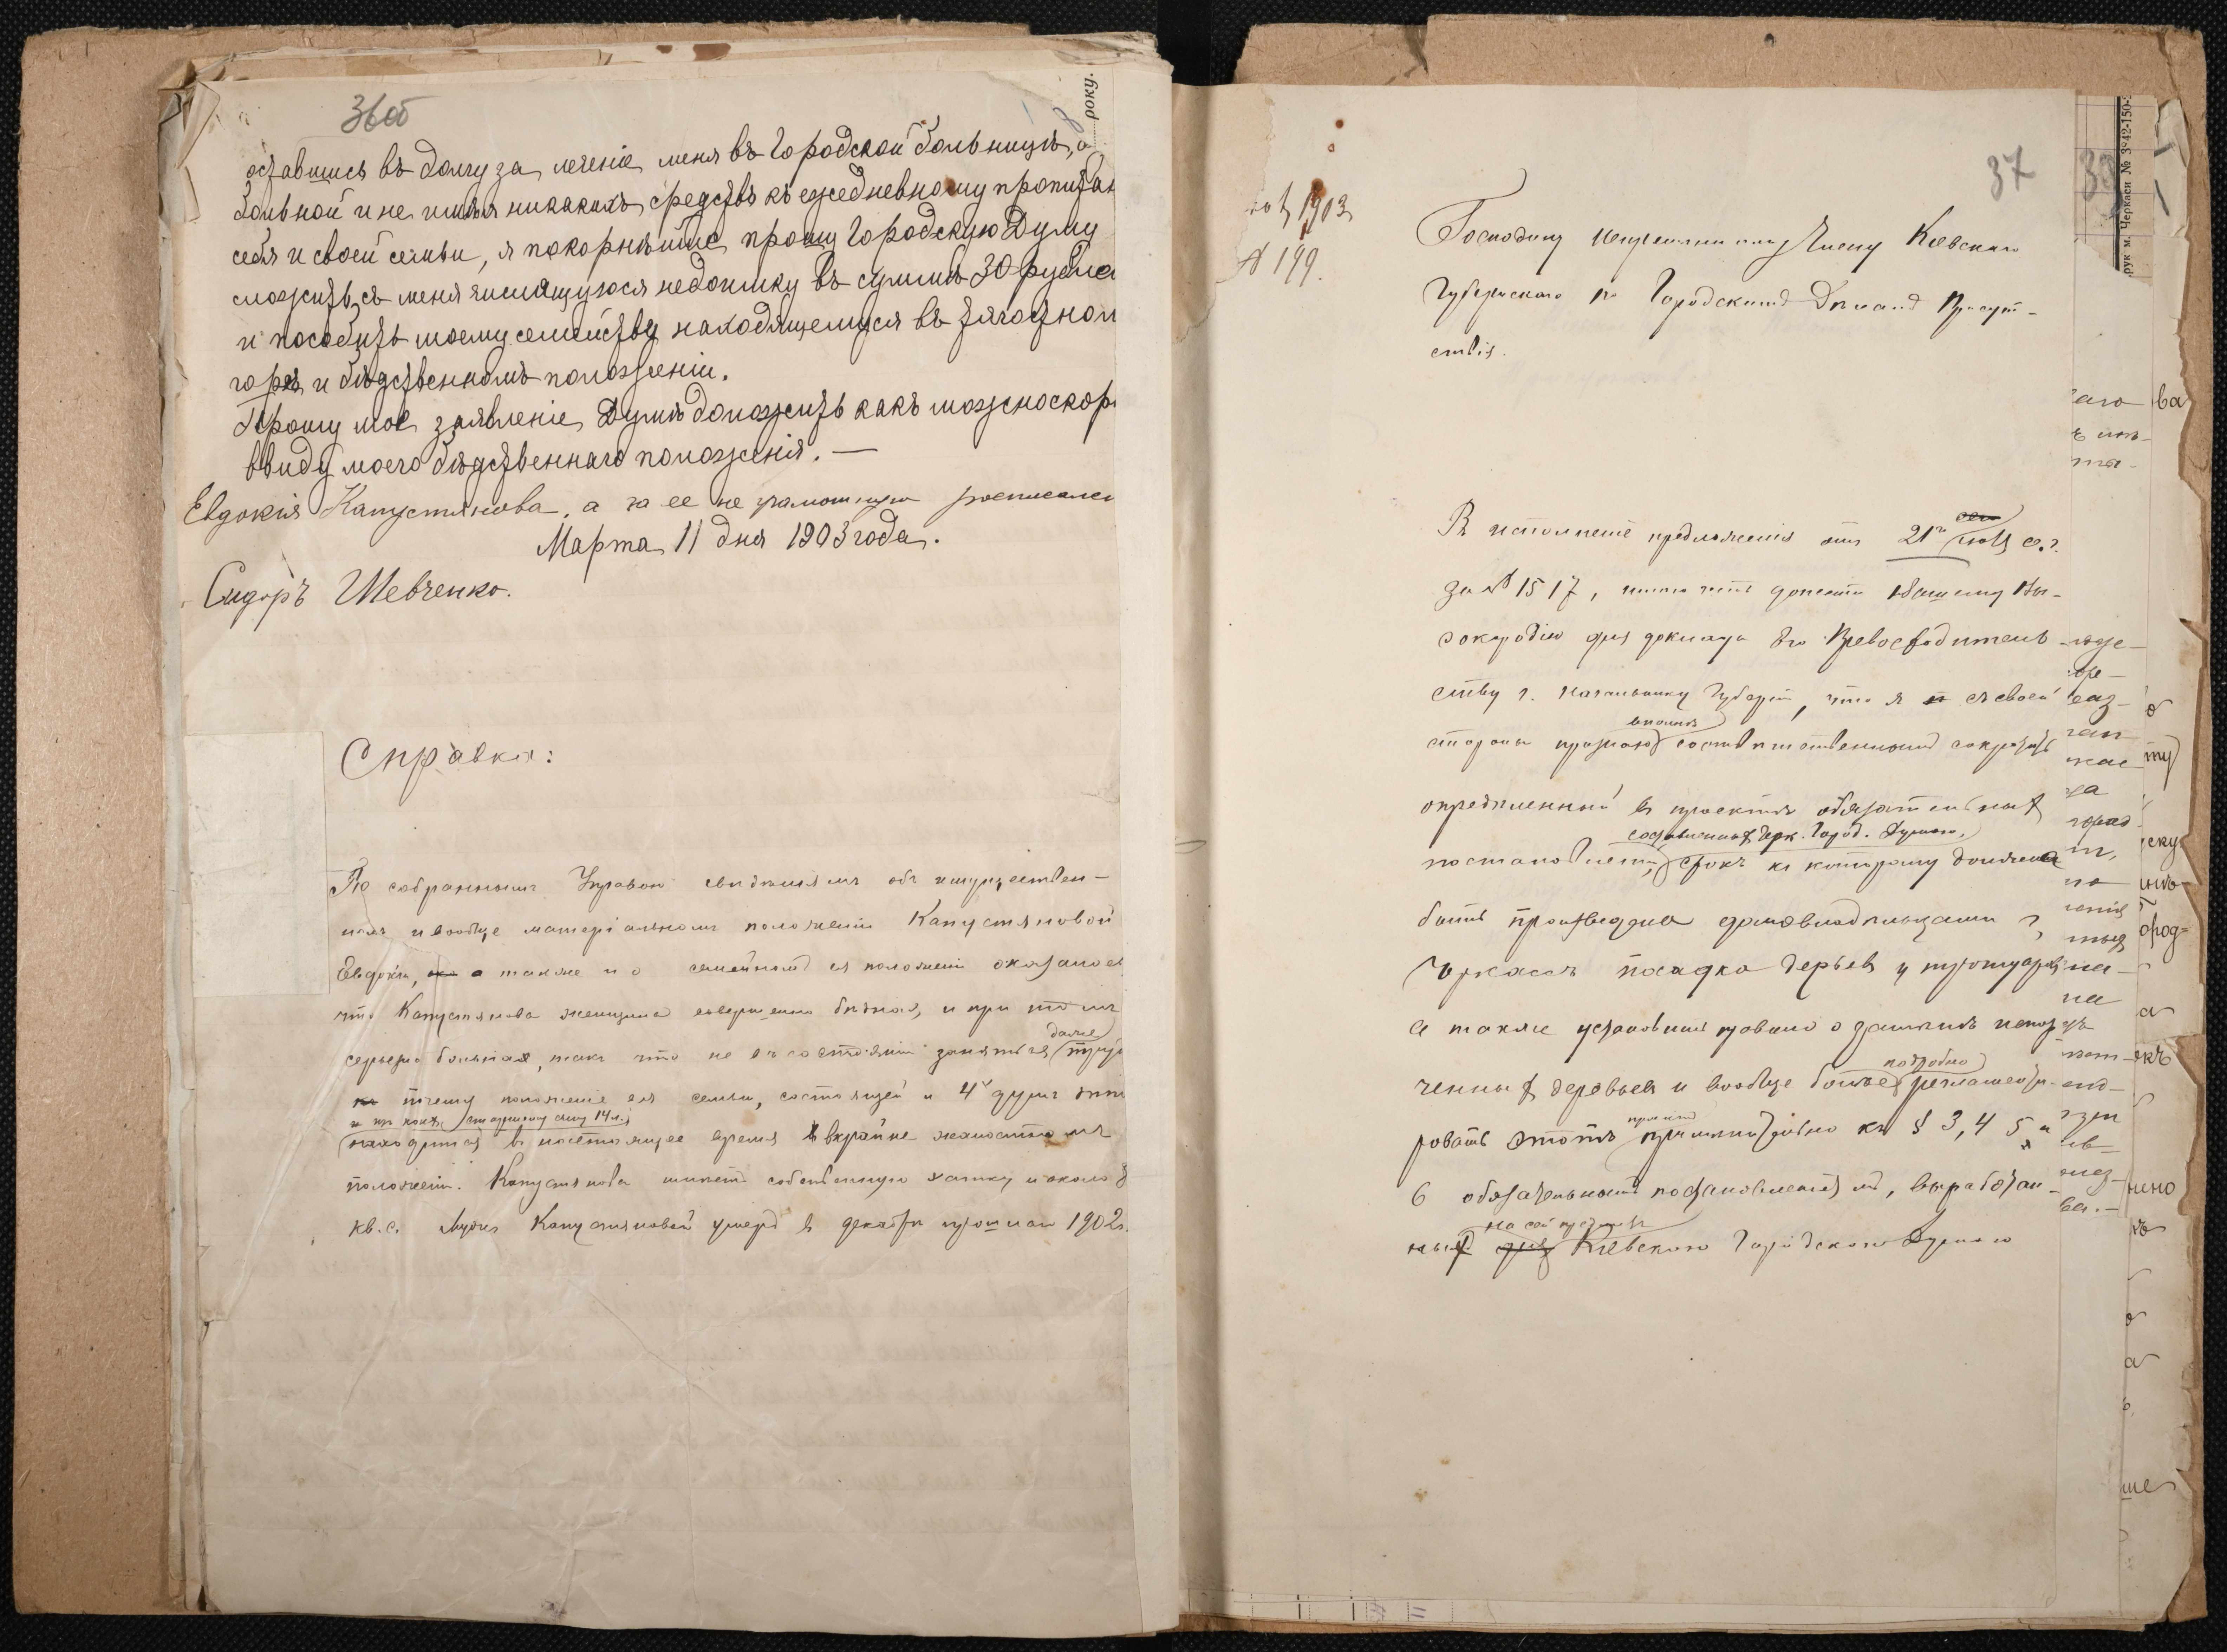 36об
оставшись въ долгу за леченіе меня въ Городской больницѣ, а
больной и не имѣя никакихъ средствъ къ ежедневному пропитан
себя и своей семьи, я покорнѣйше прошу Городскую Думу
сложить съ меня числящуюся недоимку въ суммѣ 30 рубле
и пособить моему семейству находящемуся въ тягостном
горѣ и бѣдственномъ положеніи.
Прошу мое заявленіе Думѣ доложить какъ можно скор
ввиду моего бѣдственнаго положенія. —
Евдокія Капустянова, а за ее не грамотную росписался
Марта 11 дня 1903 года.
Сидоръ Шевченко.
Справка:
По собраннымъ Управою свѣдѣніямъ объ имуществен-
номъ и вообще матеріальномъ положеніи Капустяновой
Евдокіи, а также и о семейномъ ея положеніи оказалось
что Капустянова женщина совершенно бѣдная, и при томъ
даже
серьезно больная, такъ что не въ состояніи заняться трудо
почему положеніе ея семьи, состоящей изъ 4х душъ дѣте
и изъ коихъ старшему сыну 14 л.
находится въ настоящее время въ крайне жалостномъ
положеніи. Капустянова имѣетъ собственную хатку и около
кв. с. Мужъ Капустяновой умеръ въ декабрѣ прошлаго 1902 г.
року.
37
1903
№ 199.
Господину Непремѣнному Члену Кіевскаго
Губернскаго по Городскимъ Дѣламъ Присут-
ствія.
Въ исполненіе предложенія отъ 21го іюля с. г.
за № 1517, имѣю честь донести Вашему Вы-
сокородію для доклада Его Превосходитель-
ству г. Начальнику Губерніи, что я съ своей
вполнѣ
стороны признаю соотвѣтственнымъ сократить
опредѣленный въ проектѣ обязательныхъ
составленныхъ Черк. Город. Думою,
постановленій, срокъ къ которому должна
быть произведена домовладѣльцами г.
Черкассъ посадка деревьевъ у тротуаровъ
а также установить правило о замѣнѣ испор
подробно
ченныхъ деревьевъ и вообще болѣе регламенти-
ровать этотъ примѣнительно къ § 3, 4 5 и
6 обязательнымъ постановленіямъ, выработан-
на сей предметъ
ныхъ Кіевскою Городскою Думою
рук м. Черкаси № 3942-150-